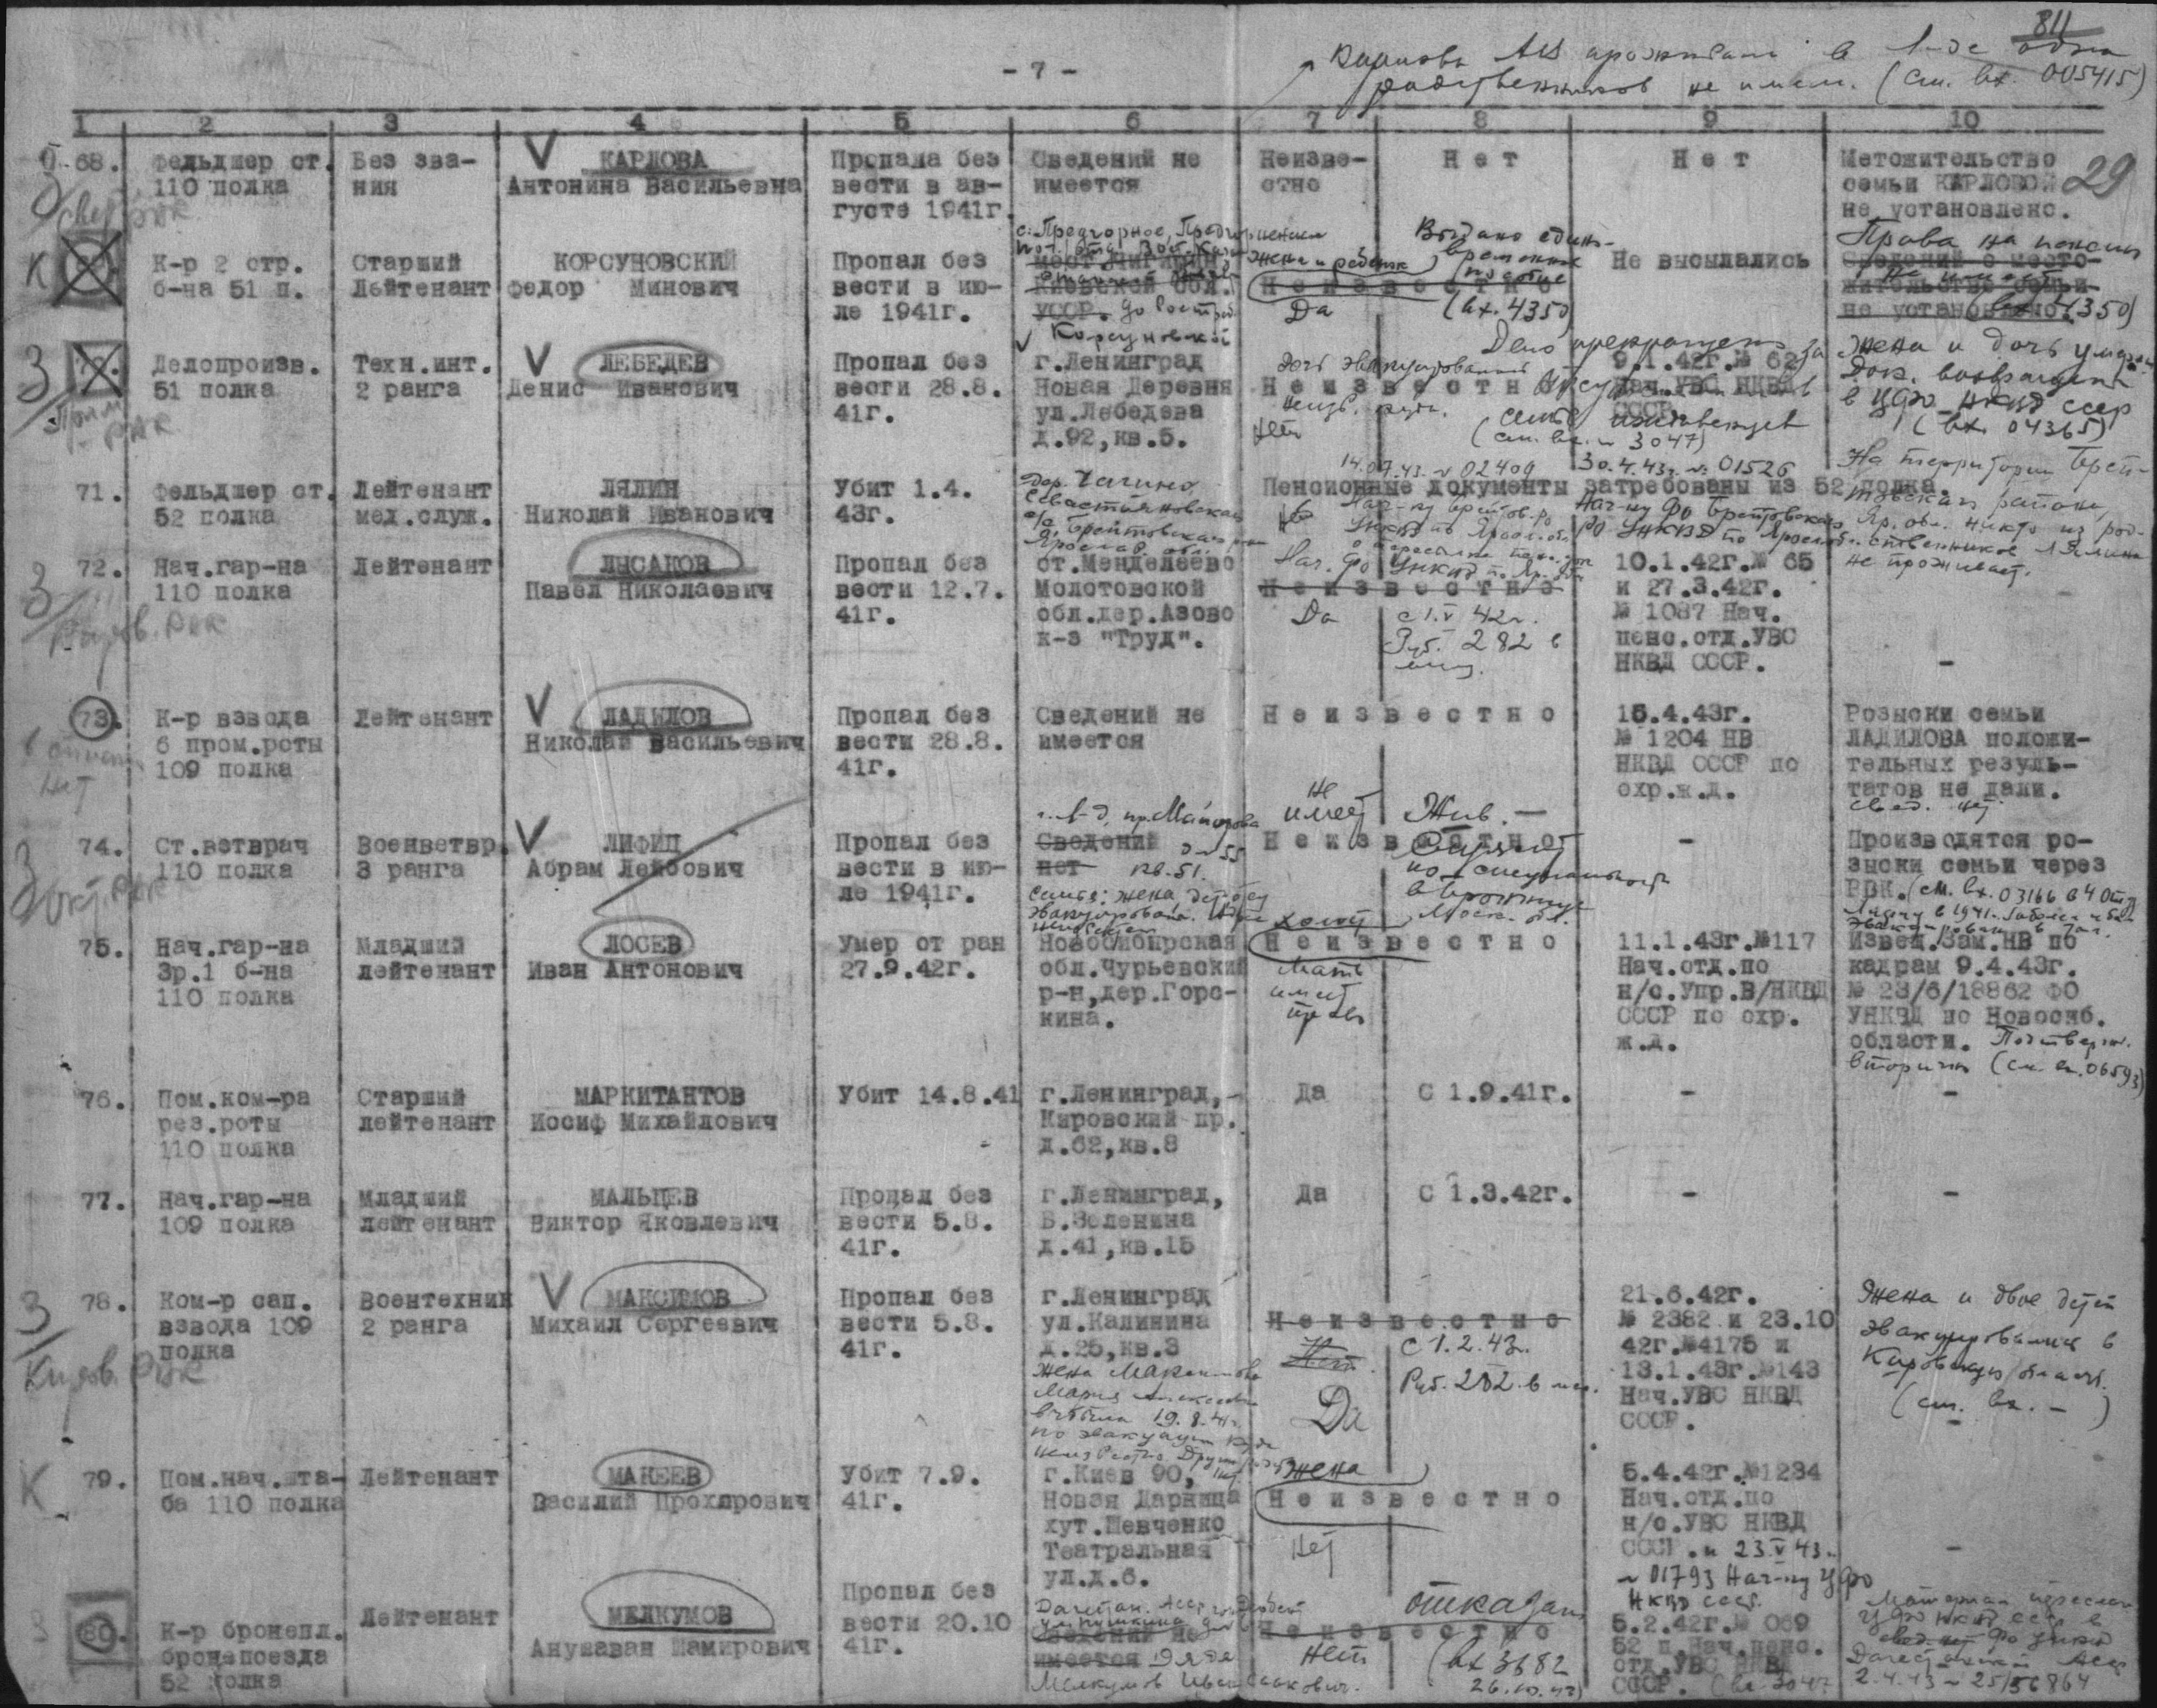 811
- 7 -
родственников не имел. (см. вх. 005415)
1 2 3 4 5 6 7 8 9 10
29
68. Фельдшер ст. 110 полка
Без звания
КАРЛОВА
Антонина Васильевна
Пропала без
вести в ав-
густе 1941г.
Сведений не
имеется
Неизве-
стно
Нет
Нет
Метожительство
семьи КАРЛОВОЙ
не установлено.
К
К-р 2 стр.
б-на 51 п.
Старший
Лейтенант
КОРСУНОВСКИЙ
Федор Минович
Пропал без
вести в ию-
ле 1941г.
с. Предгорное,
УССР.
Корсуновской
жена и ребенок
Неизвестно
Да
Выдано едино-
временное
пособие
(вх. 4350)
Не высылались
Права на пенсию
не имеет
Сведений о место-
жительстве семьи
не установлено.
(вх. 4350)
З
Делопроизв.
51 полка
Техн.инт.
2 ранга
ЛЕБЕДЕВ
Денис Иванович
Пропал без
вести 28.8.
41г.
г.Ленинград
Новая Деревня
ул.Лебедева
д.92,кв.5.
дочь эвакуирована
Неизвестно
Нет
Дело прекращено за
семье иждивенцев
(см. вх. № 3047)
9.1.42г.№ 62
Нач.УВС НКВД
СССР
Жена и дочь умерли
Док. возвращены
в ЦФО НКВД СССР
(вх. 04365)
71.
Фельдшер ст.
52 полка
Лейтенант
мед.служ.
ЛЯЛИН
Николай Иванович
Убит 1.4.
43г.
дер. Чагино
Севастьяновского
с/с Брейтовского р-на
Яросл. обл.
14.07.43. № 02409
30.4.43г. № 01526
Пенсионные документы затребованы из 52 полка.
Нач-ку ФО Брейтовского
РО УНКВД по Яросл. обл.
На территории Брей-
товского района,
Яр. обл. никто из род-
ственников Лялина
не проживает.
З
72.
Нач.гар-на
110 полка
Лейтенант
ЛЫСАКОВ
Павел Николаевич
Пропал без
вести 12.7.
41г.
ст.Менделеево
Молотовской
обл.дер.Азово
к-з "Труд".
Неизвестно
Да
с 1.V 42г.
Руб. 282 в
мес.
10.1.42г.№ 65
и 27.3.42г.
№ 1087 Нач.
пенс.отд.УВС
НКВД СССР.
-
73.
Нет
К-р взвода
6 пром.роты
109 полка
Лейтенант
ЛАДИЛОВ
Николай Васильевич
Пропал без
вести 28.8.
41г.
Сведений не
имеется
Неизвестно
15.4.43г.
№ 1204 НВ
НКВД СССР по
охр.ж.д.
Розыски семьи
ЛАДИЛОВА положи-
тельных резуль-
татов не дали.
Свед. нет
З
74.
Ст.ветврач
110 полка
Военветвр.
3 ранга
ЛИФИЦ
Абрам Лейбович
Пропал без
вести в ию-
ле 1941г.
г. Л-д, пр. Майорова
Сведений д № 55
нет кв. 51.
семья: жена,
эвакуирована.
Не
имеет
Неизвестно
Жив. -
Служит
по специальности
-
Производятся ро-
зыски семьи через
РВК. (см. вх. 03166
75.
Нач.гар-на
Зр.1 б-на
110 полка
Младший
лейтенант
ЛОСЕВ
Иван Антонович
Умер от ран
27.9.42г.
Новосибирская
обл.Чурьевский
р-н,дер.Горс-
кина.
холост
Неизвестно
Мать
имеет
право
11.1.43г.№117
Нач.отд.по
н/с.Упр.В/НКВД
СССР по охр.
ж.д.
Извещ.Зам.НВ по
кадрам 9.4.43г.
№ 23/6/18862 ФО
УНКВД по Новосиб.
области.
вторично (см. вх. 06593)
76.
Пом.ком-ра
рез.роты
110 полка
Старший
лейтенант
МАРКИТАНТОВ
Иосиф Михайлович
Убит 14.8.41
г.Ленинград,-
Кировский пр.
д.62,кв.8
Да
С 1.9.41г.
-
-
77.
Нач.гар-на
109 полка
Младший
лейтенант
МАЛЬЦЕВ
Виктор Яковлевич
Пропал без
вести 5.8.
41г.
г.Ленинград,
Б.Зеленина
д.41,кв.15
Да
С 1.3.42г.
-
-
З
78.
Ком-р сап.
взвода 109
полка
Воентехник
2 ранга
МАКСИМОВ
Михаил Сергеевич
Пропал без
вести 5.8.
41г.
г.Ленинград
ул.Калинина
д.25,кв.3
жена Максимова
Мария
выбыла 19.8.41г.
по эвакуации куда
неизвестно
Неизвестно
Нет.
Да
с 1.2.43г.
Руб. 282 в мес.
21.6.42г.
№ 2382 и 23.10
42г.№4175 и
13.1.43г.№143
Нач.УВС НКВД
СССР.
Жена и двое детей
эвакуировались в
Кировскую область.
(см. вх. - )
К
79.
Пом.нач.шта-
ба 110 полка
Лейтенант
МАКЕЕВ
Василий Прохорович
Убит 7.9.
41г.
г.Киев 90,
Новая Дарница
хут.Шевченко
Театральная
ул.д.6.
жена
Неизвестно
Нет
5.4.42г.№1234
Нач.отд.по
н/с.УВС НКВД
СССР. и 23.V 43г.
№ 01793 Нач-ку ЦФО
НКВД СССР.
-
80.
К-р бронепл.
бронепоезда
52 полка
Лейтенант
МЕЛКУМОВ
Анушаван Шамирович
Пропал без
вести 20.10
41г.
Дагестан. АССР
ул. Пушкина
Сведений не
имеется Дядя
Мелкумов
Неизвестно
Нет
отказано
(вх 3682
26.10.43)
5.2.42г.№ 069
52 п.Нач.пенс.
отд.УВС НКВД
СССР.
Материал переслан
ЦФО НКВД СССР в
Дагестанской АССР
2.4.43 № 25/56864